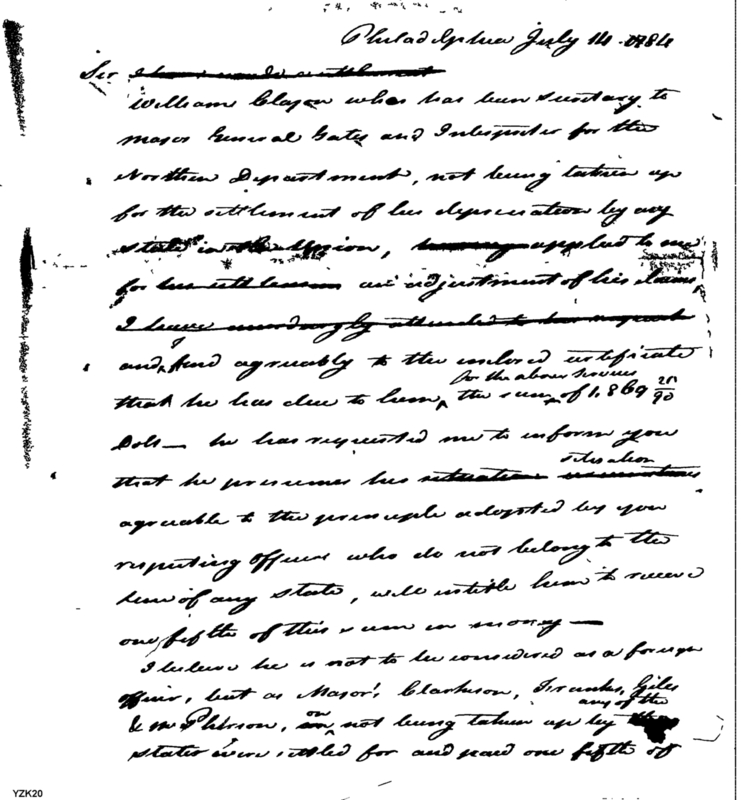 Philadelphia July 14. 1784
Sir I have made a settlement
William Clajon who has been Secretary to
Major General Gates and Interpreter for the
Northern Department, not being taken up
for the settlement of his depreciation by any
state in the Union, having applied to me
for his settlement an adjustment of his claims
I have accordingly attended to his request
and, find agreeably to the enclosed certificate
for the above services
that he has due to him, the sum of 1,869 20/90
Dols— he has requested me to inform you
situation
that he presumes his situation
agreable to the principle adopted by you
respecting Officers who do not belong to the
line of any state, will intitle him to receive
one fifth of this sum in money—
I believe he is not to be considered as a foreign
officer, but as Major's Clarkson, Franks, Giles
any of the
& McPherson, on not being taken up by
states were settled for and paid one fifth of
YZK20